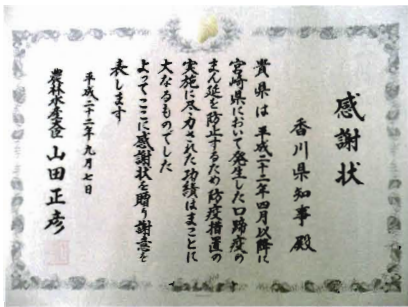 感謝状
香川県知事 殿
貴県は平成二十二年四月以降に
宮崎県において発生した口蹄疫の
まん延を防止するため防疫措置の
実施に尽力された功績はまことに
大なるものでした
よってここに感謝状を贈り謝意を
表します
平成二十二年九月七日
農林水産大臣 山田正彦